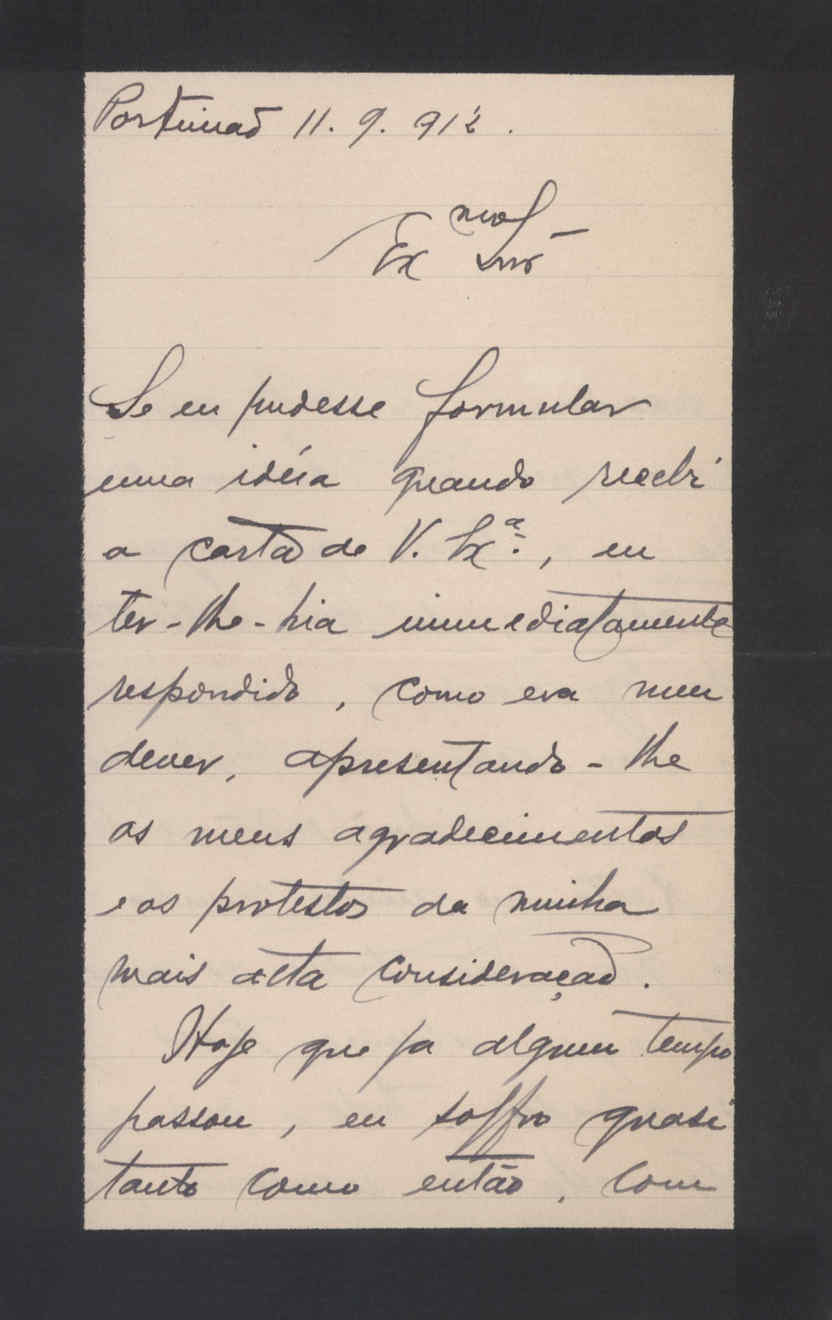 Portimão 11. 9. 912.
Exmo Snr
Se eu pudesse formular
uma idéia quando recebi
a carta de V. Exª., eu
ter-lhe-hia immediatamente
respondido, como era meu
dever, apresentando-lhe
os meus agradecimentos
e os protestos da minha
mais alta consideração.
Hoje que ja algum tempo
passou, eu soffro quasi
tanto como então. Com